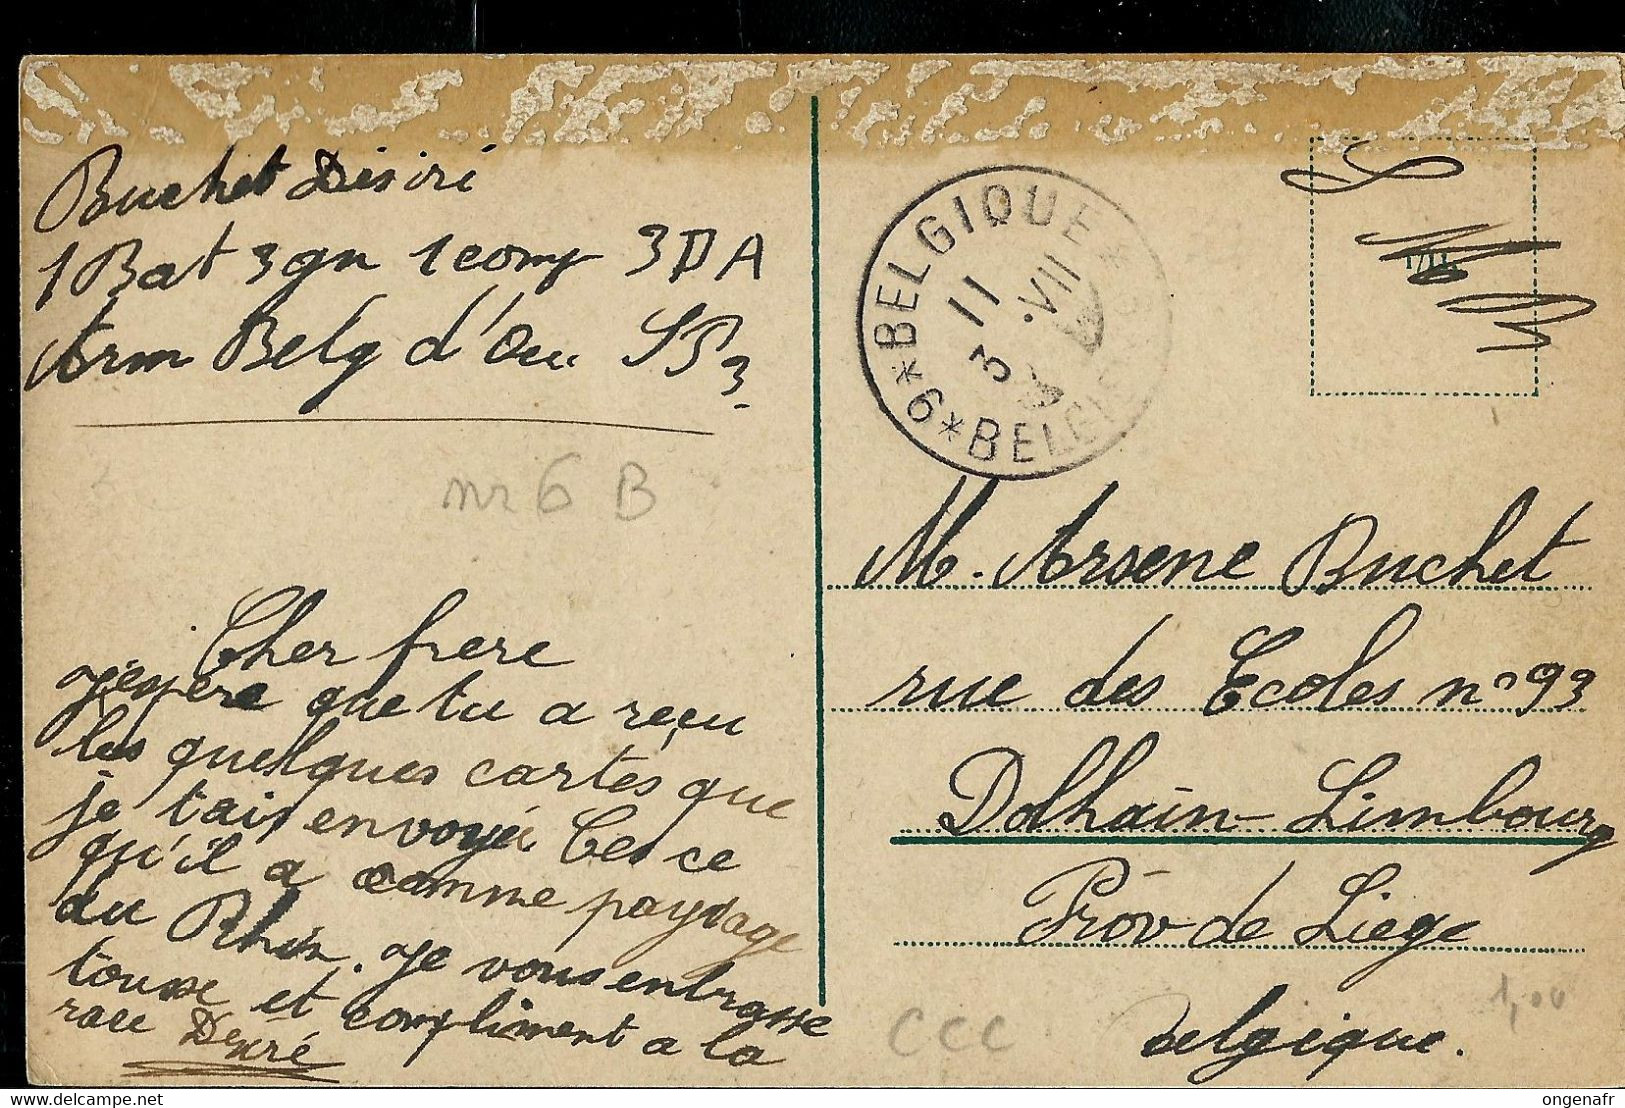 Buchet Désiré
1 Bat 3 gn 1 comp 3 DA
Arm Belg d'Occ SP3
nr 6 B
Cher frere
j'espere que tu a reçu
les quelques cartes que
je tais envoyér Ces ce
qu'il a comme paysage
du Rhin. Je vous entrasse
tousse et compliment a la
race Désiré
*BELGIQUE*
11
3 .VII
*6*BELGIE
S M B
M. Arsene Buchet
rue des Ecoles n° 93
Dolhain-Limbourg
Prov de Liege
Belgique.
1,00
CCC
ongenafr